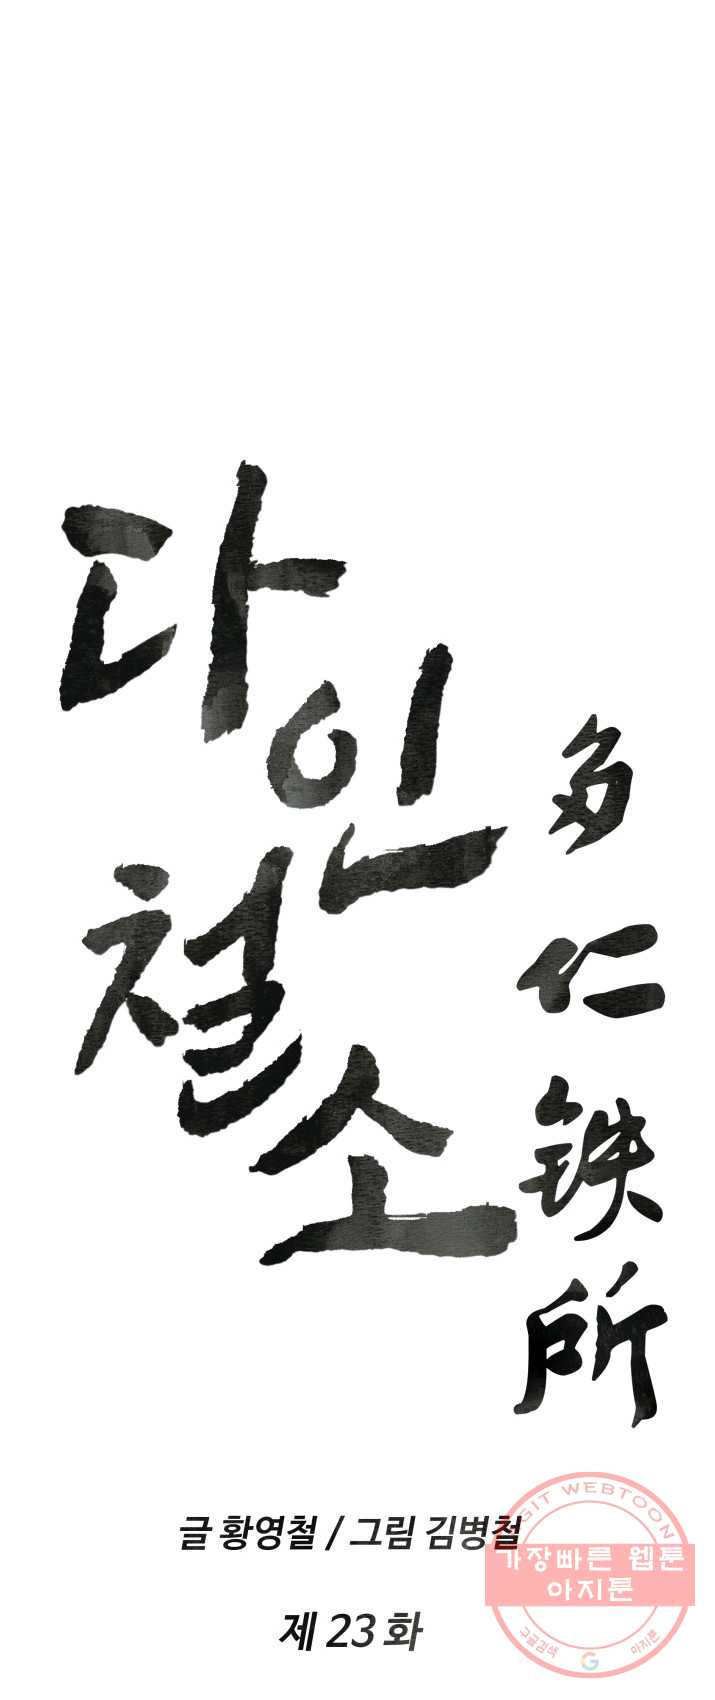 다인
철소
多仁鉄所
글 황영철 / 그림 김병철
제 23 화
AGIT WEBTOON
가장빠른 웹툰
아지툰
구글검색 G 아지툰